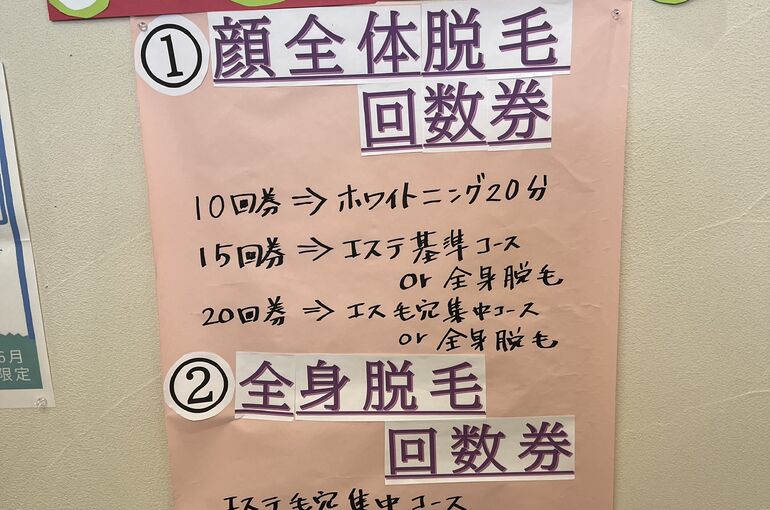 ① 顔全体脱毛
回数券
10回券 ⇒ ホワイトニング20分
15回券 ⇒ エステ基準コース
or 全身脱毛
20回券 ⇒ エス毛穴集中コース
or 全身脱毛
② 全身脱毛
回数券
エステ毛穴集中コース
6月
限定